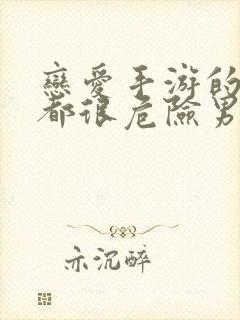 戀愛手游的
都很危險男
亦沉醉